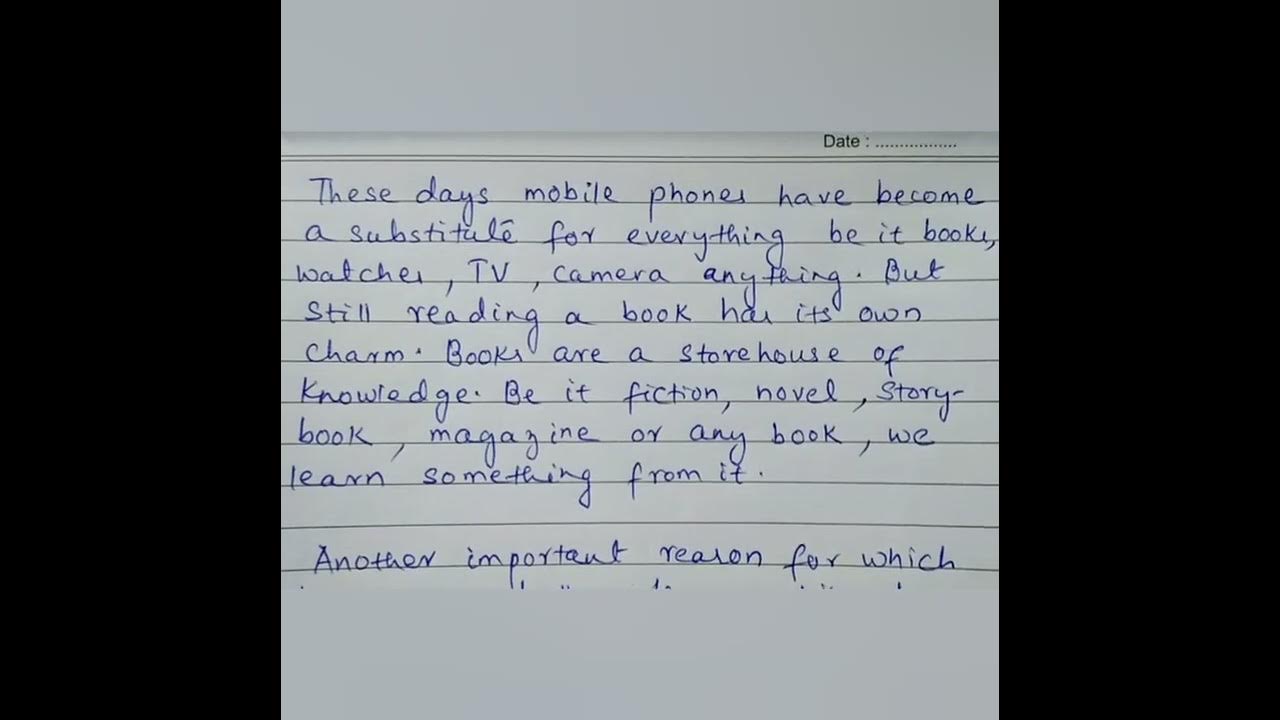 Date : .................
These days mobile phones have become
a substitute for everything be it books,
watches, TV, camera anything. But
still reading a book has its own
charm. Books are a storehouse of
knowledge. Be it fiction, novel, story-
book, magazine or any book, we
learn something from it.
Another important reason for which